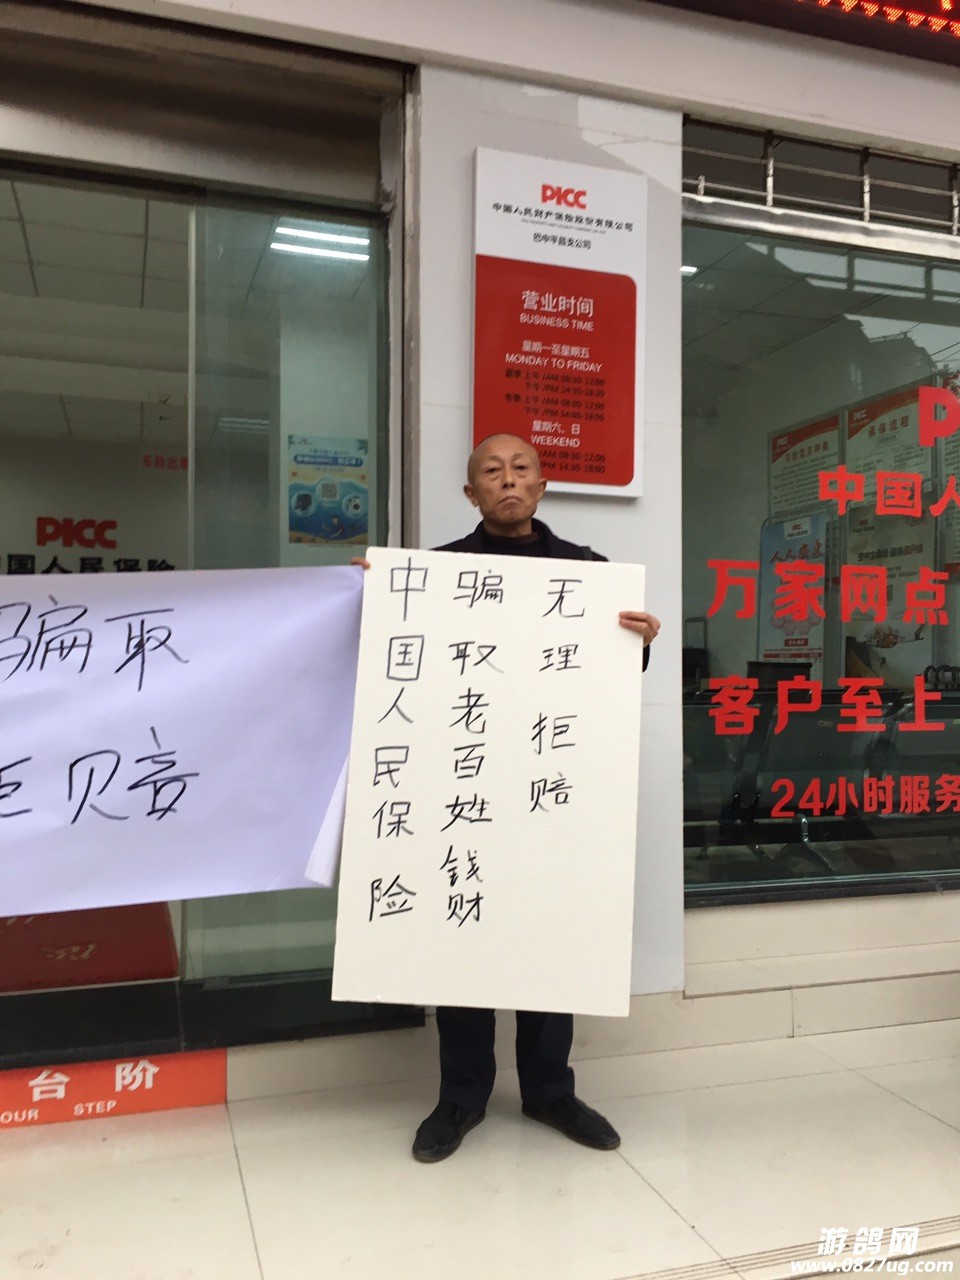 PICC
中国人民财产保险股份有限公司
巴中平昌支公司
营业时间
BUSINESS TIME
星期一至星期五
MONDAY TO FRIDAY
夏季 上午 /AM 08:30-12:00
下午 /PM 14:30-18:30
冬季 上午 /AM 08:00-12:00
下午 /PM 14:00-18:00
星期六、日
WEEKEND
/PM 14:30-18:00
PICC
中国人民保险
骗取
拒赔
中国人民保险
骗取老百姓钱财
无理拒赔
中国人
万家网点
客户至上
24小时服务
PICC
承保流程
台阶
OUR STEP
游鸽网
www.0827ug.com